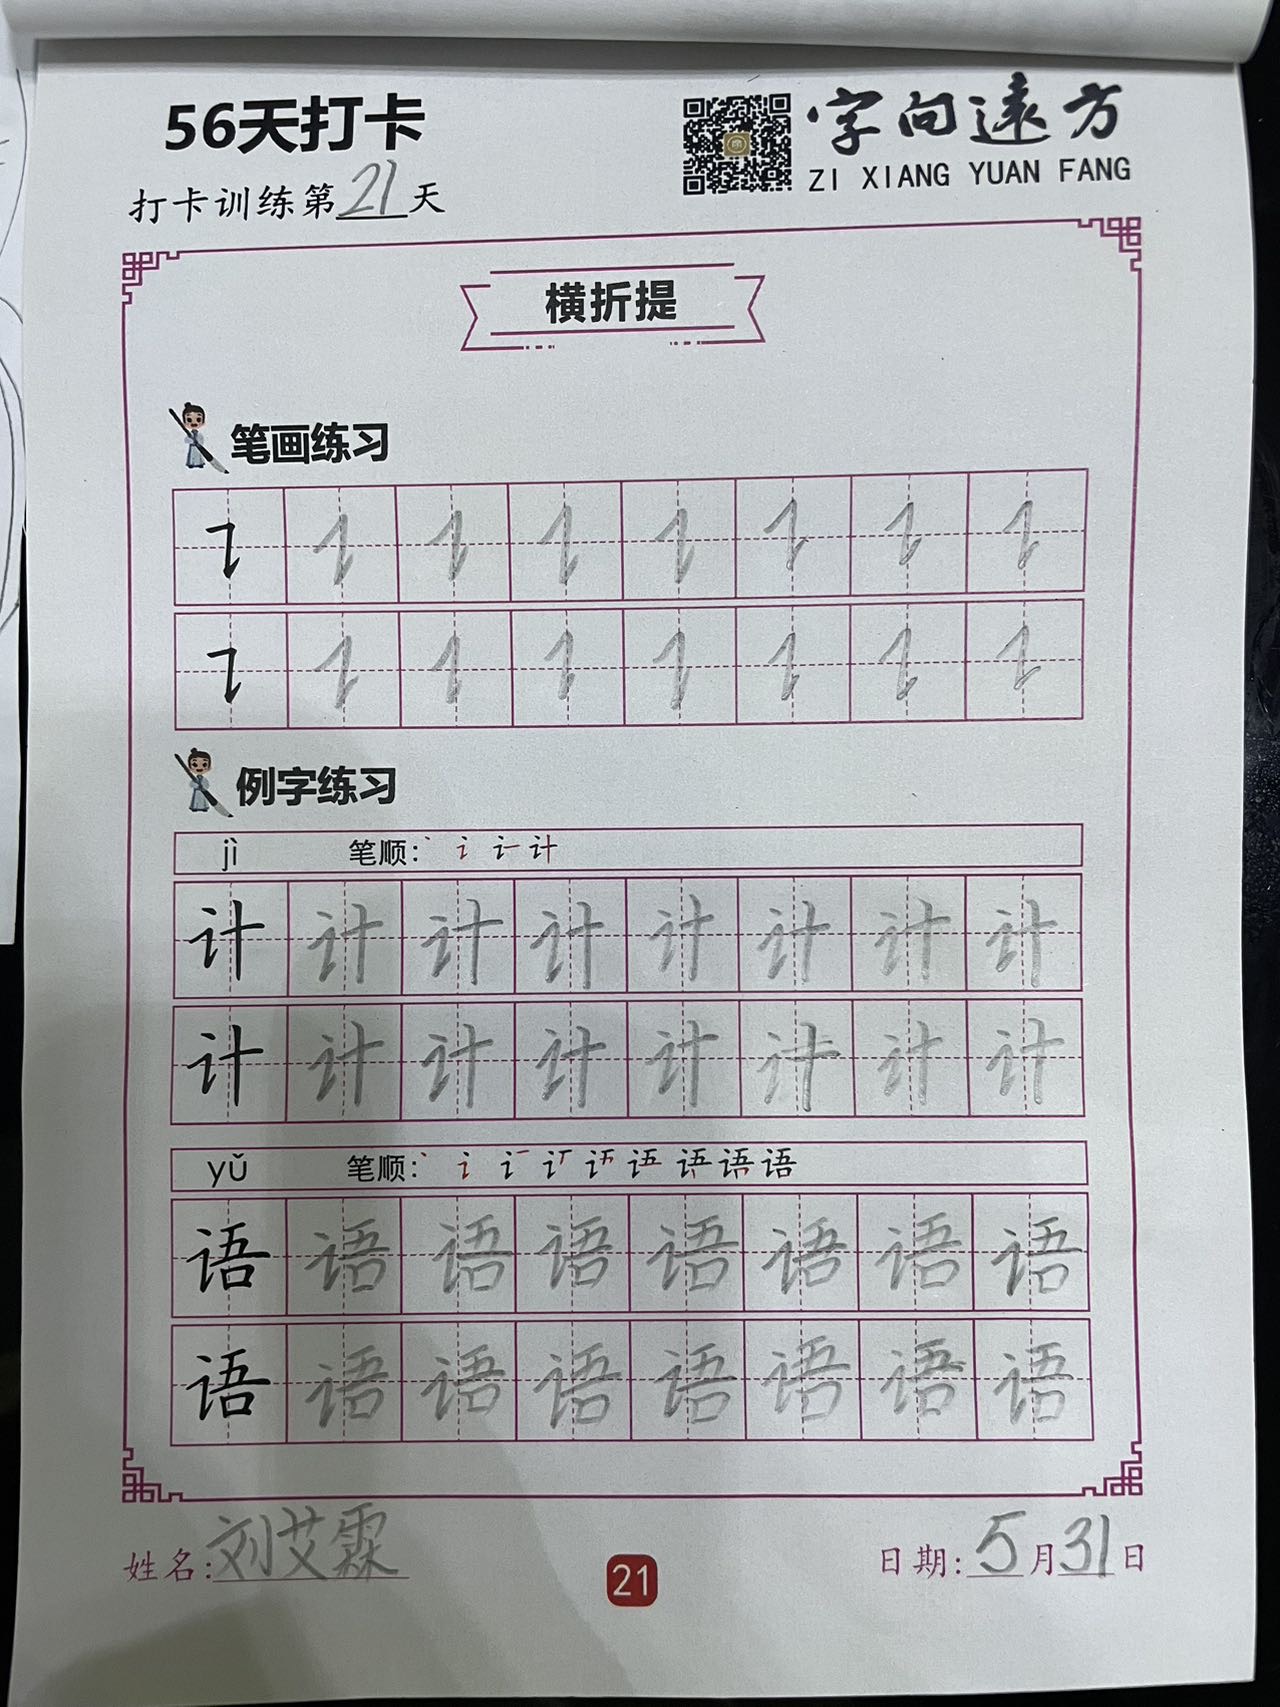 56天打卡
字向遠方
ZI XIANG YUAN FANG
打卡训练第21天
横折提
笔画练习
例字练习
jì 笔顺: 计
计 计 计 计 计 计 计 计
计 计 计 计 计 计 计 计
yǔ 笔顺: 语
语 语 语 语 语 语 语 语
语 语 语 语 语 语 语 语
姓名:刘艾霖
21
日期:5月31日